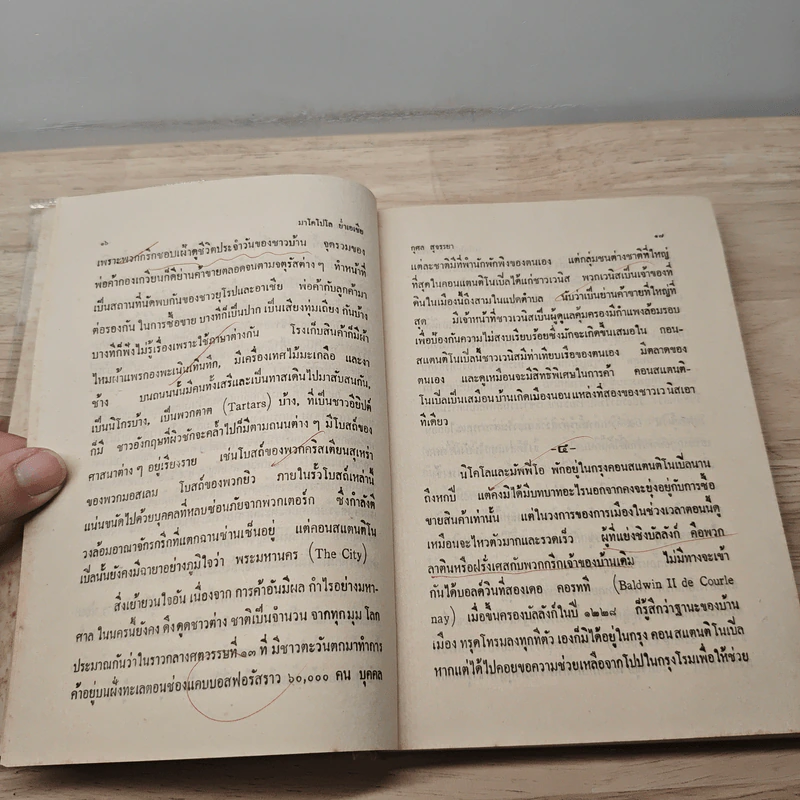 ๑๖
มาโคโปโล ย่ำเอเซีย
เพราะพวกกรีกชอบเฝ้าดูชีวิตประจำวันของชาวบ้าน จุดรวมของ
พ่อค้ากองเกวียนก็ดีย่านค้าขายตลอดจนตามจตุรัสต่าง ๆ ทำหน้าที่
เป็นสถานที่นัดพบกันของชาวยุโรปและอาเซีย พ่อค้ากับลูกค้ามา
ต่อรองกัน ในการซื้อขาย บางทีก็เป็นปาก เป็นเสียงทุ่มเถียง กันบ้าง
บางทีก็ฟังไม่รู้เรื่องเพราะใช้ภาษาต่างกัน โรงเก็บสินค้าก็มีผ้า
ไหมผ้าแพรกองพะเนินเทินทึก, มีเครื่องเทศไม้มะเกลือ และงา
ช้าง บนถนนนั้นมีคนทั้งเสรีและเป็นทาสเดินไปมาสับสนกัน,
เป็นนิโกรบ้าง, เป็นพวกตาด (Tartars) บ้าง, ที่เป็นชาวอียิปต์
ก็มี ชาวอังกฤษที่ผิวชักจะคล้ำไปก็มีตามถนนต่าง ๆ มีโบสถ์ของ
ศาสนาต่าง ๆ อยู่เรียงราย เช่นโบสถ์ของพวกคริสเตียนสุเหร่า
ของพวกมอสเลม โบสถ์ของพวกยิว ภายในรั้วโบสถ์เหล่านี้
แน่นขนัดไปด้วยบุคคลที่หลบซ่อนภัยจากพวกเตอร์ก ซึ่งกำลังตี
วงล้อมอาณาจักรกรีกที่แตกฉานซ่านเซ็นอยู่ แต่คอนสแตนติโน
เปิ้ลนั้นยังคงมีฉายาอย่างภูมิใจว่า พระมหานคร (The City)
สิ่งเย้ายวนใจอัน เนื่องจาก การค้าอันมีผล กำไรอย่างมหา-
ศาล ในนครนี้ยังคง ดึงดูดชาวต่าง ชาติเป็นจำนวน จากทุกมุม โลก
ประมาณกันว่าในราวกลางศตวรรษที่ ๑๓ ที่ มีชาวตะวันตกมาทำการ
ค้าอยู่บนฝั่งทะเลตอนช่องแคบบอสฟอรัสราว ๖๐,๐๐๐ คน บุคคล
กุศล สุจรรยา
๑๗
แต่ละชาติมีที่พำนักพักพิงของตนเอง แต่กลุ่มชนต่างชาติที่ใหญ่
ที่สุดในคอนแตนติโนเปิ้ลได้แก่ชาวเวนิส พวกเวนิสเป็นเจ้าของที่
ดินในเมืองนี้ถึงสามในแปดตำบล นับว่าเป็นย่านค้าขายที่ใหญ่ที่
สุด มีเจ้าหน้าที่ชาวเวนิสเป็นผู้ดูแลคุ้มครองมีกำแพงล้อมรอบ
เพื่อป้องกันความไม่สงบเรียบร้อยซึ่งมักจะเกิดขึ้นเสมอใน คอน-
สแตนติโนเปิ้ลนี้ชาวเวนิสมีท่าเทียบเรือของตนเอง มีตลาดของ
ตนเอง และดูเหมือนจะมีสิทธิพิเศษในการค้า คอนสแตนติ-
โนเปิ้ลเป็นเสมือนบ้านเกิดเมืองนอนแหล่งที่สองของชาวเวนิสเอา
ทีเดียว
-๔-
นิโคโลและมัฟฟีโอ พักอยู่ในกรุงคอนสแตนติโนเปิ้ลนาน
ถึงหกปี แต่คงมิได้มีบทบาทอะไรนอกจากคงจะยุ่งอยู่กับการซื้อ
ขายสินค้าเท่านั้น แต่ในวงการของการเมืองในช่วงเวลาตอนนั้นดู
เหมือนจะไหวตัวมากและรวดเร็ว ผู้ที่แย่งชิงบัลลังก์ คือพวก
ลาตินหรือฝรั่งเศสกับพวกกรีกเจ้าของบ้านเดิม ไม่มีทางจะเข้า
กันได้บอลด์วินที่สองเดอ คอรทที่ (Baldwin II de Courle
nay) เมื่อขึ้นครองบัลลังก์ในปี ๑๒๒๘ ก็รู้สึกว่าฐานะของบ้าน
เมือง ทรุดโทรมลงทุกทีตัว เองก็มิได้อยู่ในกรุง คอน สแตนติโนเปิ้ล
หากแต่ได้ไปคอยขอความช่วยเหลือจากโปปในกรุงโรมเพื่อให้ช่วย